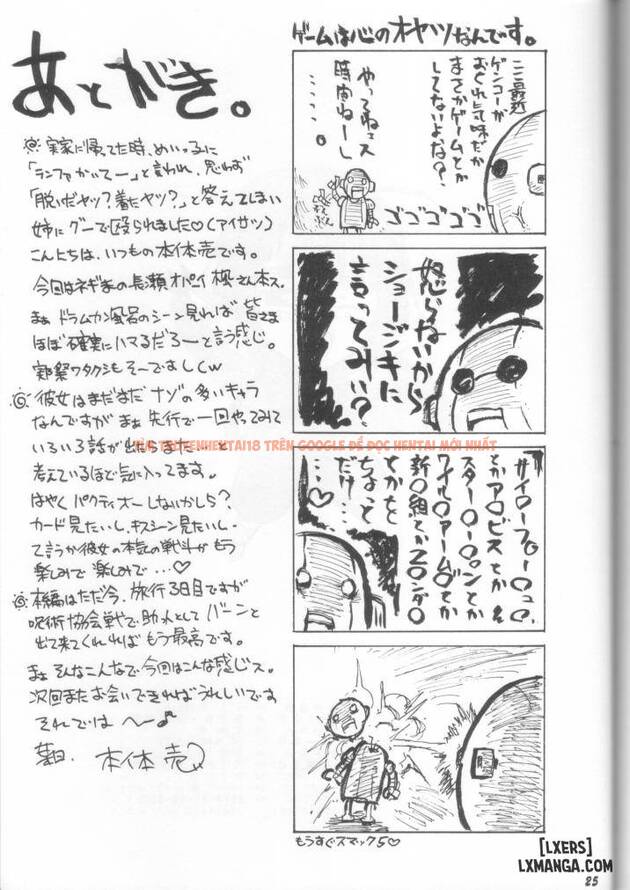 あとがき。
◎実家に帰ってた時、めいっ子に
「ランファかいてー」と言われ、思わず
「脱いだヤツ?着たヤツ?」と答えてしまい
姉にグーで殴られました♡(アイサツ)
こんにちは、いつもの本体売です。
今回はネギまの長瀬 楓さん本ス。
まぁドラムカン風呂のシーン見れば皆さま
ほぼ確実にハマるだろーと言う感じ。
実際ワタクシもそーですしw
◎彼女はまだまだナゾの多いキャラ
なんですが まぁ先行で一回やってみて
いろいろ話が出たらまた…と
考えているほど気に入ってます。
はやくパクティオーしないかしら?
カード見たいし、キスシーン見たいし。
て言うか彼女の本気の戦斗がもう
楽しみで楽しみで…♡
◎本編はただ今、旅行3日目ですが
呪術協会戦で助っ人として バーンと
出て来てくれればもう最高です。
まぁ そんなこんなで今回はこんな感じス。
次回またお会いできればうれしいです
それでは〜♪
本体売
ゲームは心のオヤツなんです。
ここ最近
ゲンコーが
おくれ気味だが
まさかゲームとか
してないよな?
やってねェス
時間ねーし
……。
ゴゴゴゴゴ
怒らないから
ショージキに
言ってみい?
とかア○ビスとか
スター○ーン とか
ワイル○アーム○とか
新○組とか
とかを
ちょっと
だけ…
…♡
もうすぐスマック5♡
TÌM TRUYENHENTAI18 TRÊN GOOGLE ĐỂ ĐỌC HENTAI MỚI NHẤT
[LXERS]
LXMANGA.COM
25